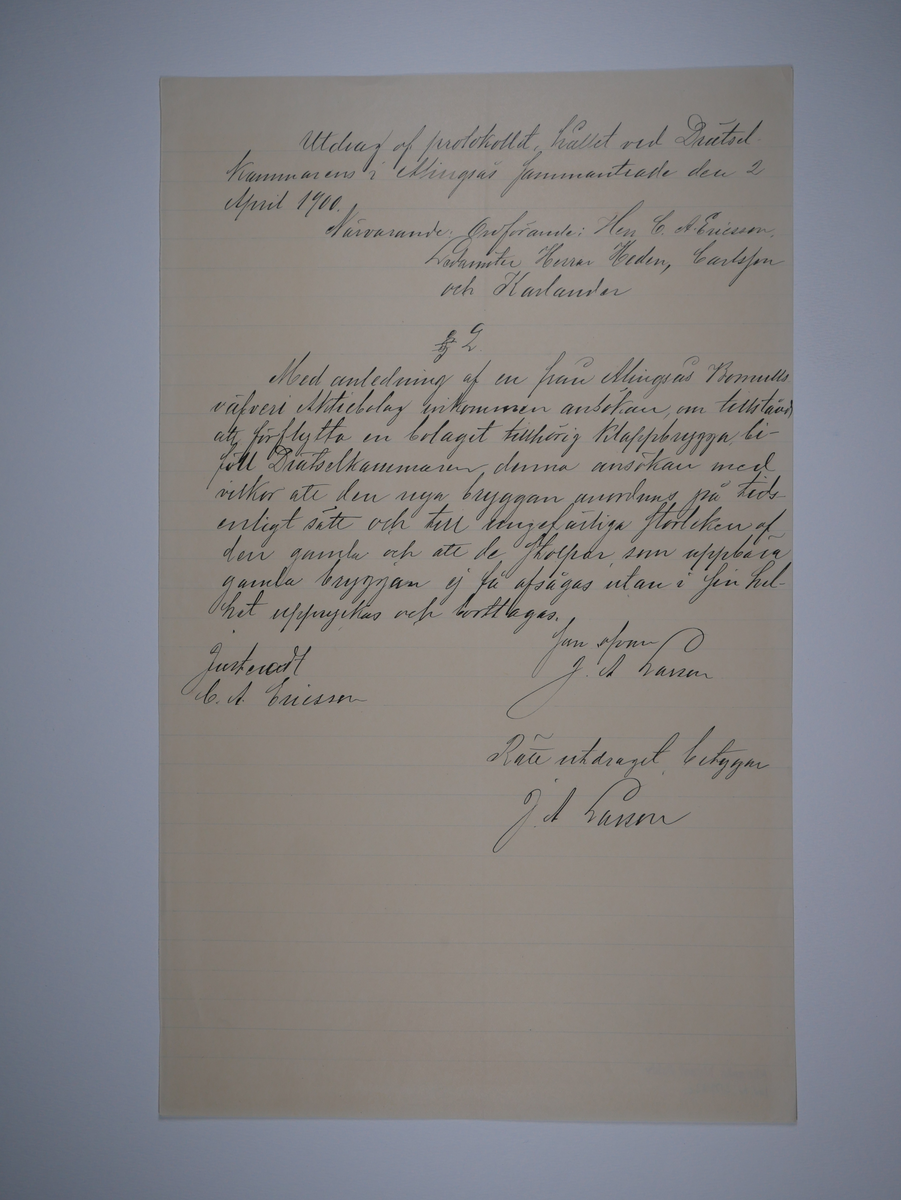 Utdrag af protokollet, hållet vid Drätsel-
Kammarens i Alingsås sammanträde den 2
April 1900.
Närvarande: Ordförande: Herr C. A. Ericson.
Ledamöter Herrar Heden, Carlsson
och Karlander
§ 2
Med anledning af en från Alingsås Bomulls
väfveri Aktiebolag inkommen ansökan, om tillstånd
att förflytta en bolaget tillhörig klappbrygga, bi-
föll Drätselkammaren denna ansökan med
vilkor att den nya bryggan anordnas på tids-
enligt sätt och till ungefärliga storleken af
den gamla och att de stolpar, som uppbära
gamla bryggan ej få afsågas utan i sin hel-
het uppryckas och borttagas.
Som ofvan
J. A Larson
Justeradt
C. A. Ericsson
Rätt utdraget, betygar
J. A Larson